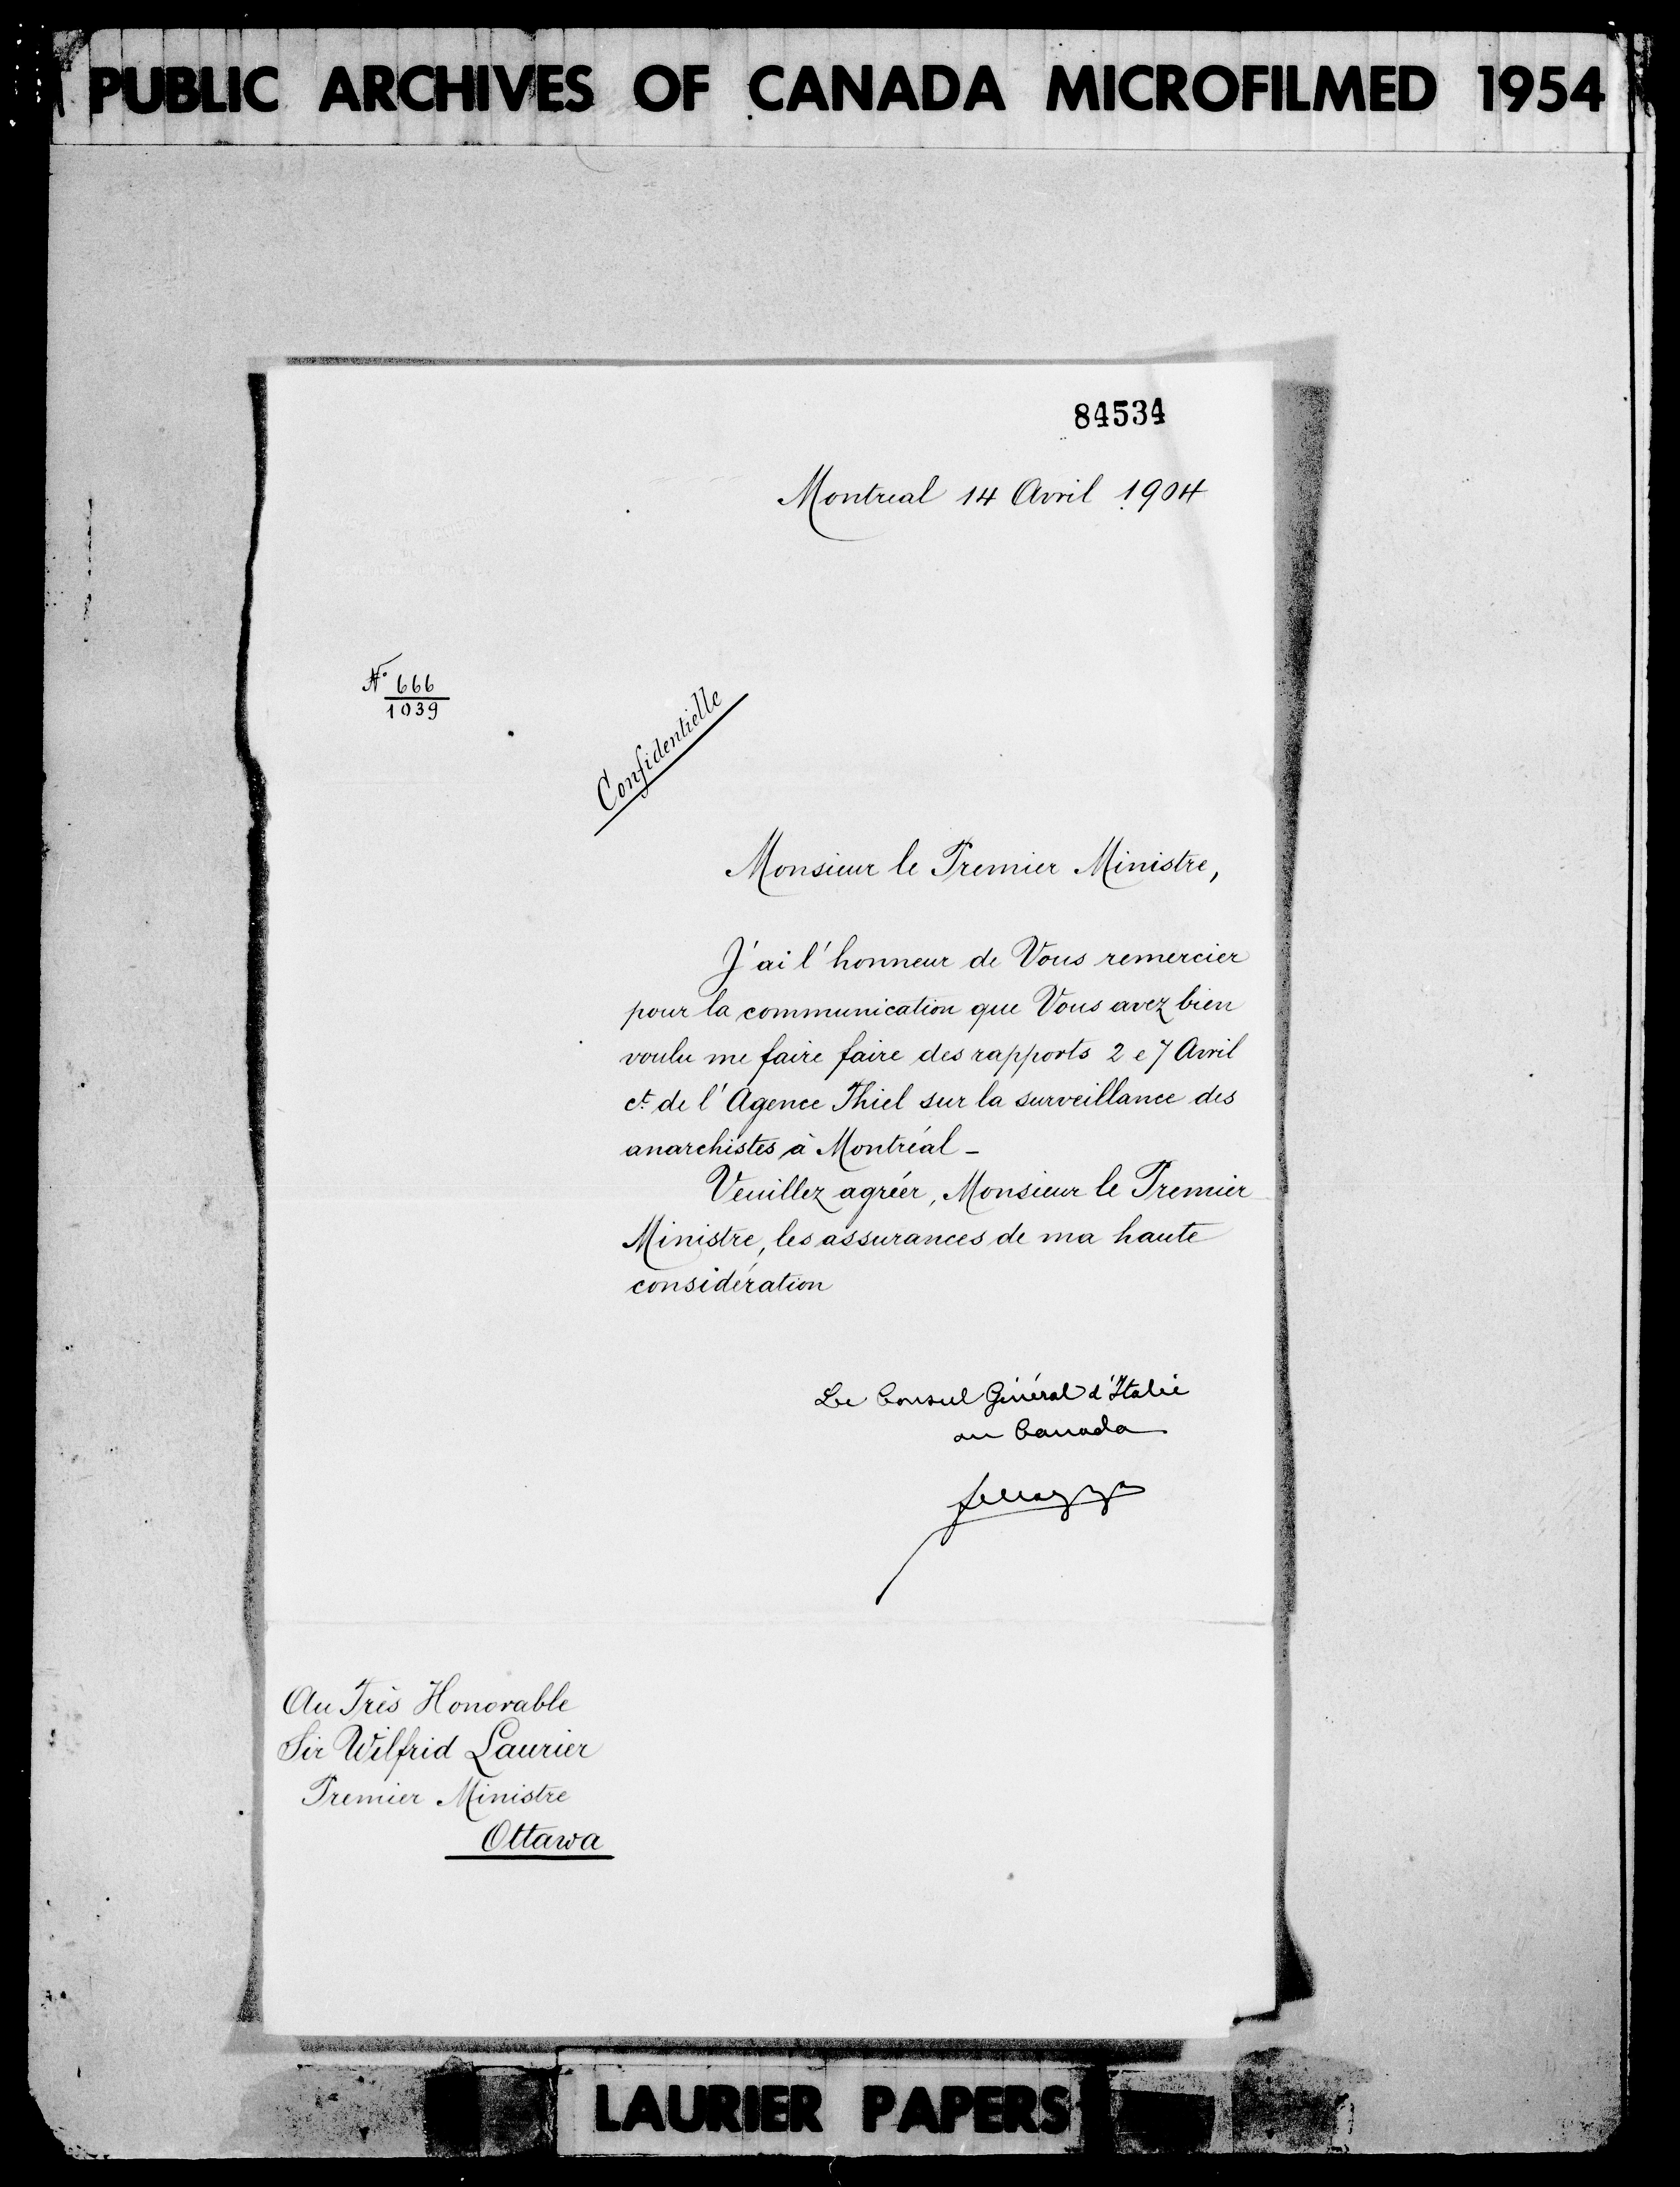 PUBLIC ARCHIVES OF CANADA MICROFILMED 1954
84534
Montreal 14 Avril 1904
No 666
1039
Confidentielle
Monsieur le Premier Ministre,
J'ai l'honneur de Vous remercier
pour la communication que Vous avez bien
voulu me faire faire des rapports 2 e 7 Avril
ct. de l'Agence Thiel sur la surveillance des
anarchistes à Montréal -
Veuillez agréer, Monsieur le Premier
Ministre, les assurances de ma haute
considération
Le Consul Général d'Italie
au Canada
Au Très Honorable
Sir Wilfrid Laurier
Premier Ministre
Ottawa
LAURIER PAPERS